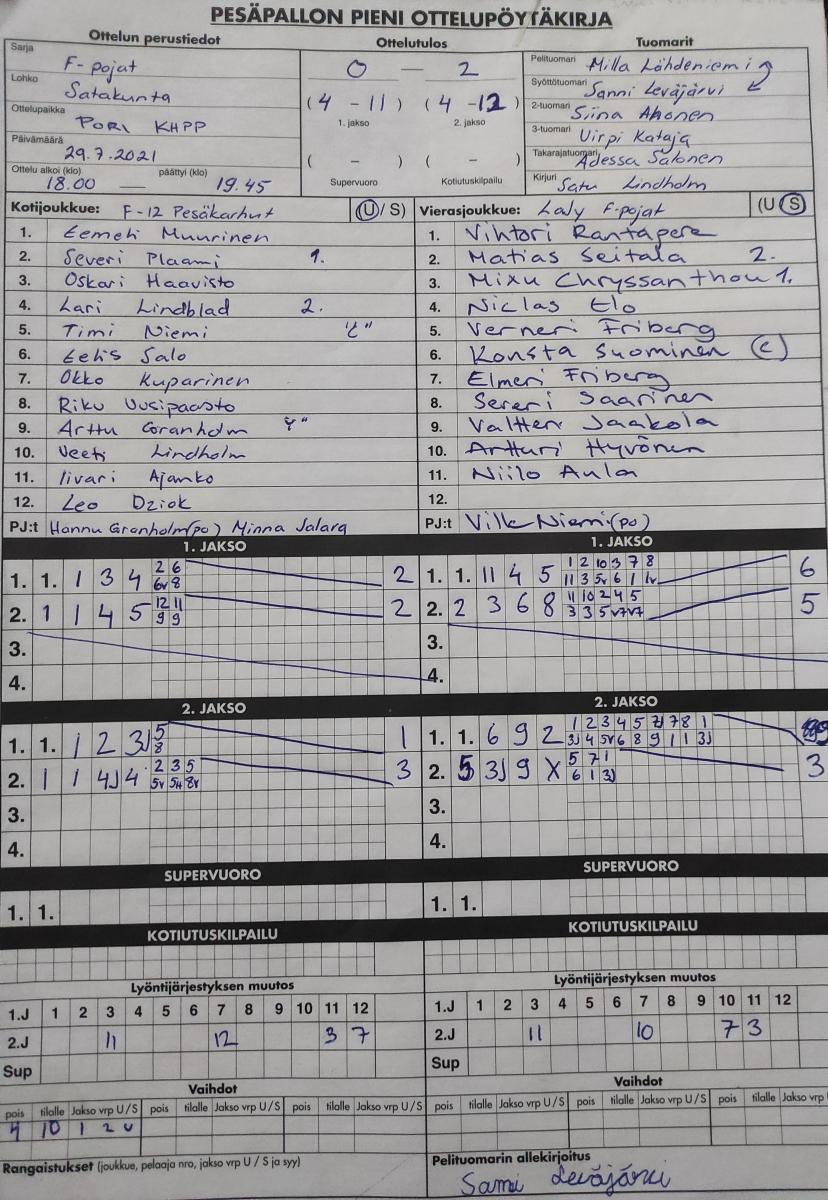 PESÄPALLON PIENI OTTELUPÖYTÄKIRJA
Ottelun perustiedot
Sarja F-pojat
Lohko Satakunta
Ottelupaikka PORI KHPP
Päivämäärä 29.7.2021
Ottelu alkoi (klo) 18.00 — päättyi (klo) 19.45
Ottelutulos
0 — 2
(4 - 11) (4 - 12)
1. jakso 2. jakso
( - ) ( - )
Supervuoro Kotiutuskilpailu
Tuomarit
Pelituomari Milla Lähdeniemi
Syöttötuomari Sanni Leväjärvi
2-tuomari Siina Ahonen
3-tuomari Virpi Kataja
Takarajatuomari Adessa Salonen
Kirjuri Satu Lindholm
Kotijoukkue: F-12 Pesäkarhut (U/S)
1. Eemeli Muurinen
2. Severi Plaami 1.
3. Oskari Haavisto
4. Lari Lindblad 2.
5. Timi Niemi
6. Eelis Salo
7. Okko Kuparinen
8. Riku Uusipaasto
9. Arttu Granholm
10. Veeti Lindholm
11. Iivari Ajanko
12. Leo Dziok
PJ:t Hannu Granholm (po) Minna Jalara
Vierasjoukkue: Laly F-pojat (U S)
1. Vihtori Rantapere
2. Matias Seitala 2.
3. Mixu Chryssanthou 1.
4. Niclas Elo
5. Verneri Friberg
6. Konsta Suominen (C)
7. Elmeri Friberg
8. Sereri Saarinen
9. Valtteri Jaakola
10. Artturi Hyvönen
11. Niilo Aula
12.
PJ:t Ville Niemi (po)
1. JAKSO
1. 1. 1 3 4 2 6 2
6v 8
2. 1 1 4 5 12 11 2
9 9
3.
4.
1. JAKSO
1. 1. 11 4 5 1 2 10 3 7 8 6
11 3 5v 6 1 1v
2. 2 3 6 8 11 10 2 4 5 5
3 3 5v 7v 7v
3.
4.
2. JAKSO
1. 1. 1 2 3J 5 1
8
2. 1 1 4J 4 2 3 5 3
5v 5H 8v
3.
4.
2. JAKSO
1. 1. 6 9 2 1 2 3 4 5 7J 7 8 1 9
3J 4 5v 6 8 9 1 1 3J
2. 5 3J 9 X 5 7 1 3
6 1 3J
3.
4.
SUPERVUORO
1. 1.
SUPERVUORO
1. 1.
KOTIUTUSKILPAILU
KOTIUTUSKILPAILU
Lyöntijärjestyksen muutos
1.J 1 2 3 4 5 6 7 8 9 10 11 12
2.J 11 12 3 7
Sup
Lyöntijärjestyksen muutos
1.J 1 2 3 4 5 6 7 8 9 10 11 12
2.J 11 10 7 3
Sup
Vaihdot
pois tilalle Jakso vrp U / S pois tilalle Jakso vrp U / S pois tilalle Jakso vrp U / S
4 10 1 2 U
Vaihdot
pois tilalle Jakso vrp U / S pois tilalle Jakso vrp U / S pois tilalle Jakso vrp U
Rangaistukset (joukkue, pelaaja nro, jakso vrp U / S ja syy)
Pelituomarin allekirjoitus
Sanni Leväjärvi